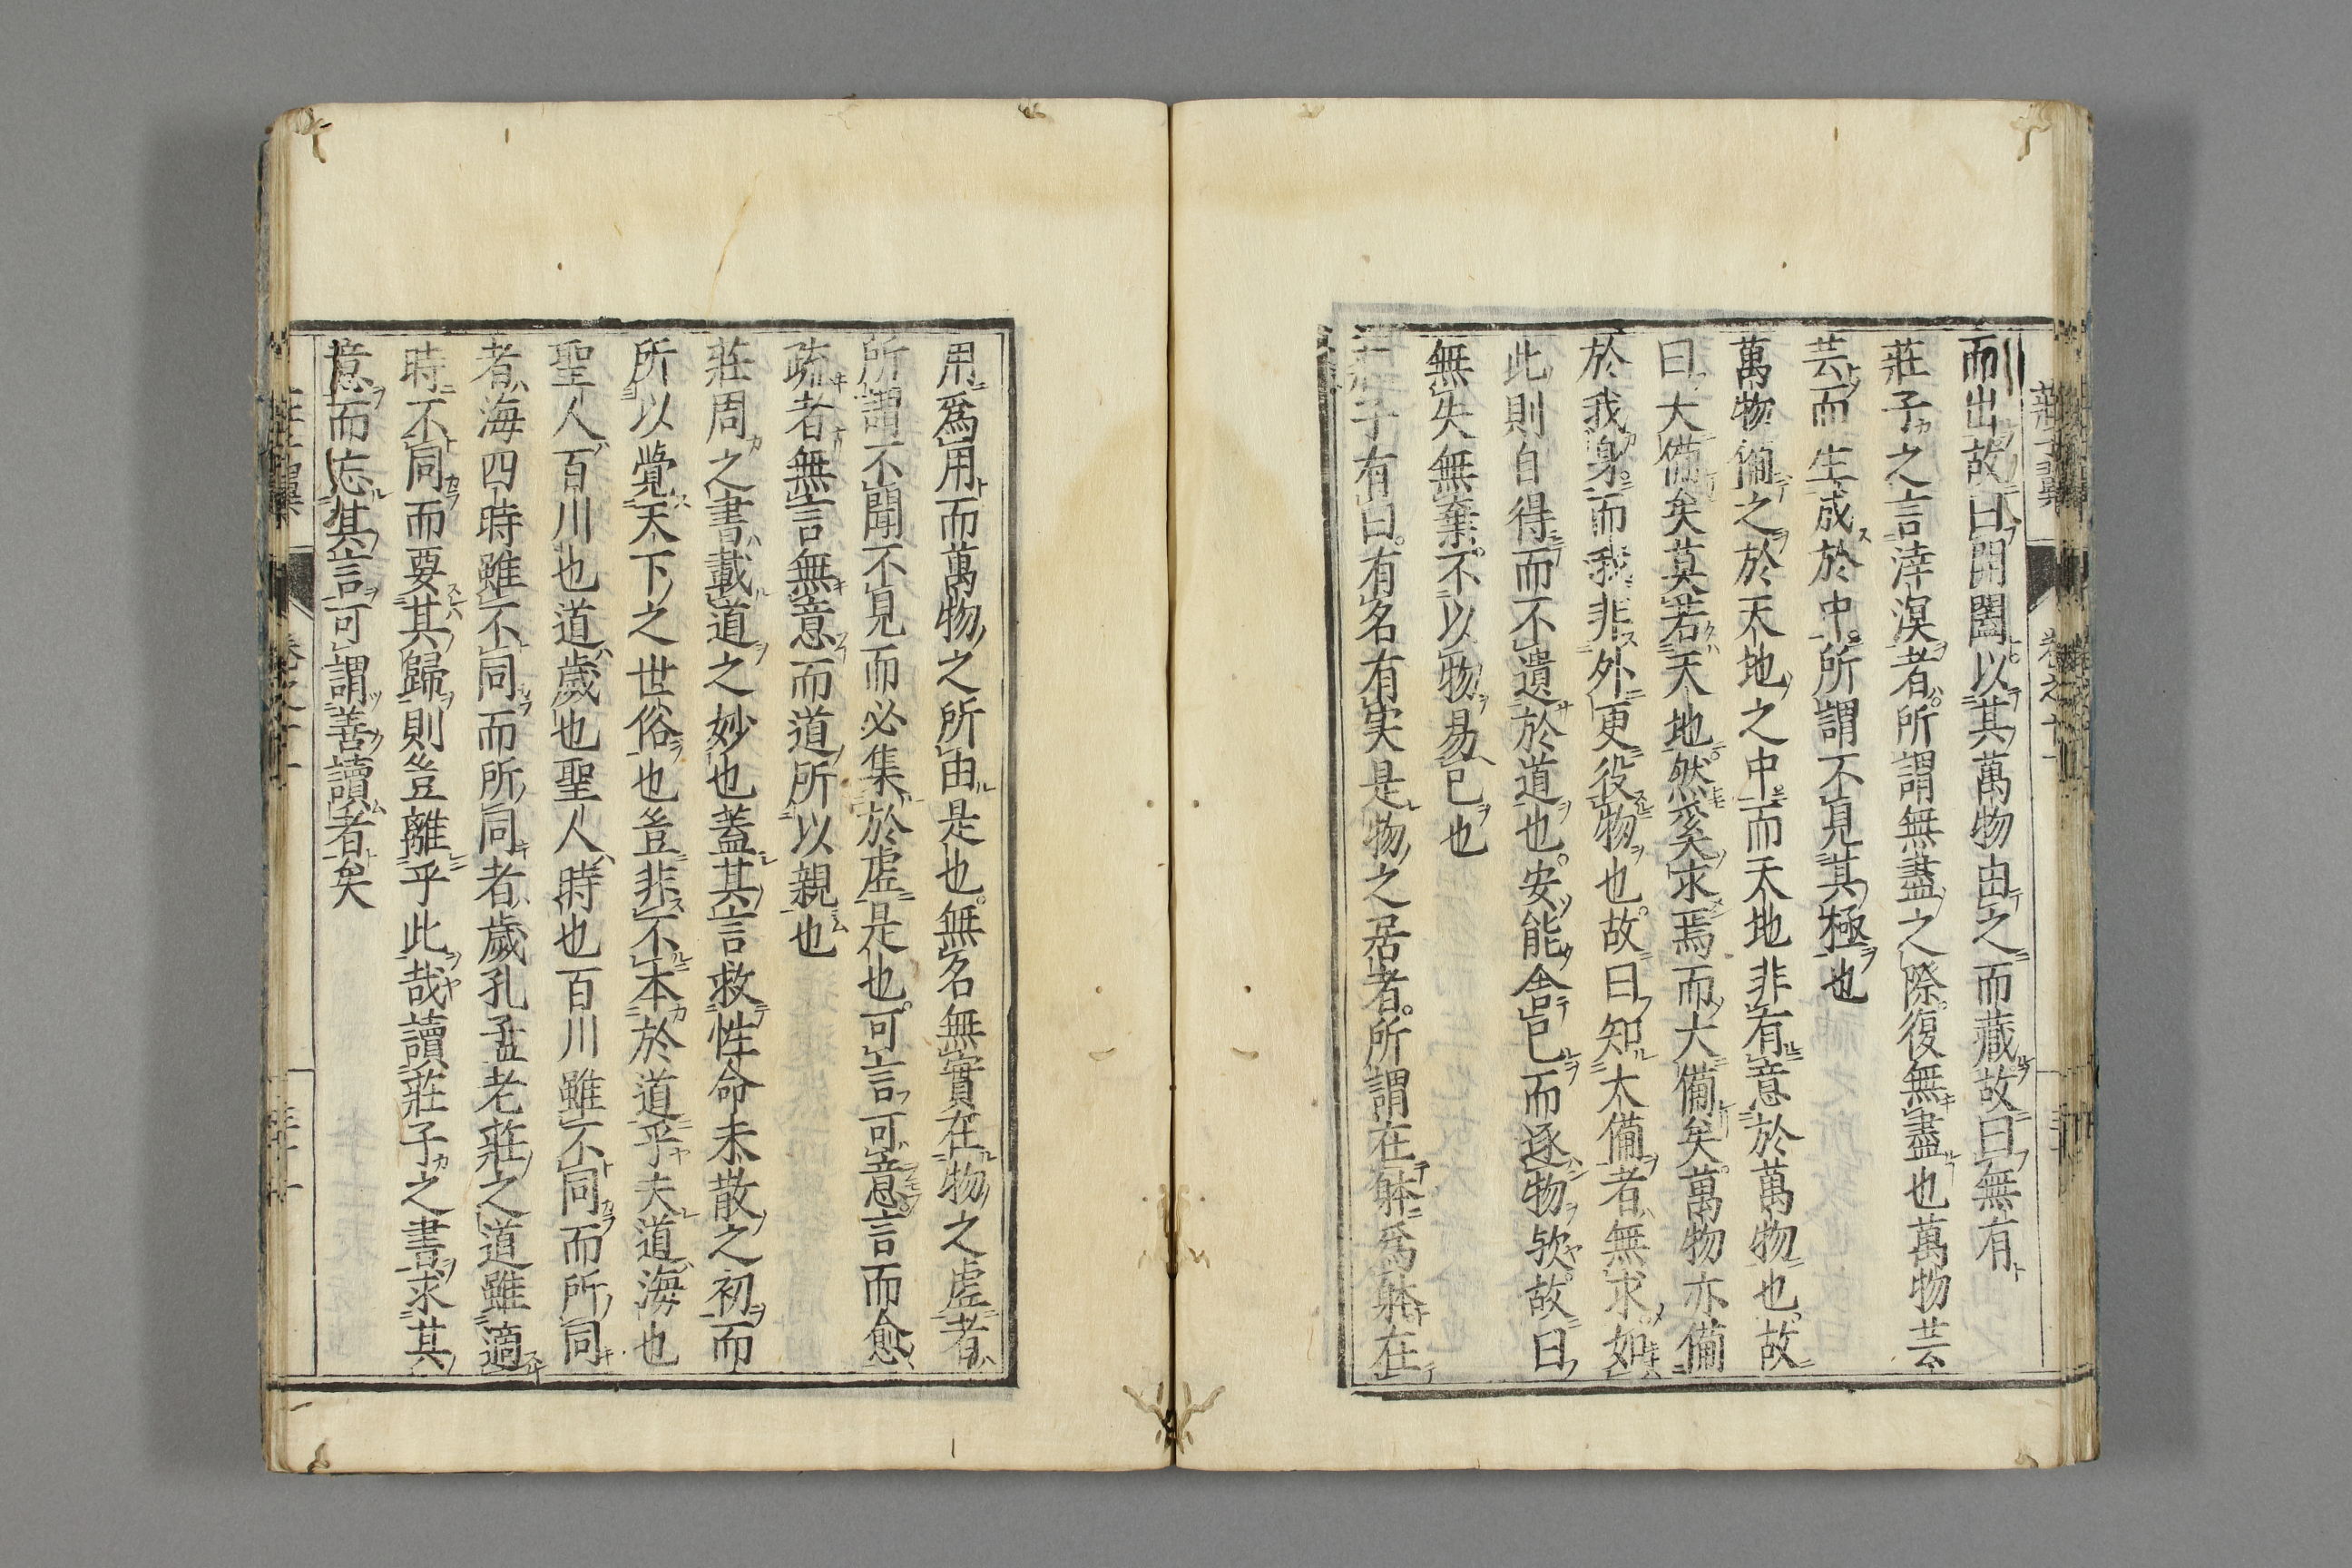 莊子翼　卷之十一
而出故曰開闔以其萬物由之而藏故曰無有
莊子之言涬溟者所謂無盡之際復無盡也萬物芸
芸而生成於中所謂不見其極也
萬物備之於天地之中而天地非有意於萬物也故
曰大備矣莫若天地然奚求焉而大備矣萬物亦備
於我身而我非外更役物也故曰知大備者無求如
此則自得而不遺於道也安能舍已而逐物欤故曰
無失無棄不以物易已也
子有曰有名有実是物之居者所謂在躰爲躰在
用爲用而萬物之所由是也無名無實在物之虛者
所謂不聞不見而必集於虛是也可言可意言而愈
疏者無言無意而道所以親也
莊周之書載道之妙也蓋其言救性命未散之初而
所以覺天下之世俗也豈非不本於道乎夫道海也
聖人百川也道歲也聖人時也百川雖不同而所同
者海四時雖不同而所同者歲孔孟老莊之道雖適
時不同而要其歸則豈離乎此哉讀莊子之書求其
意而忘其言可謂善讀者矣